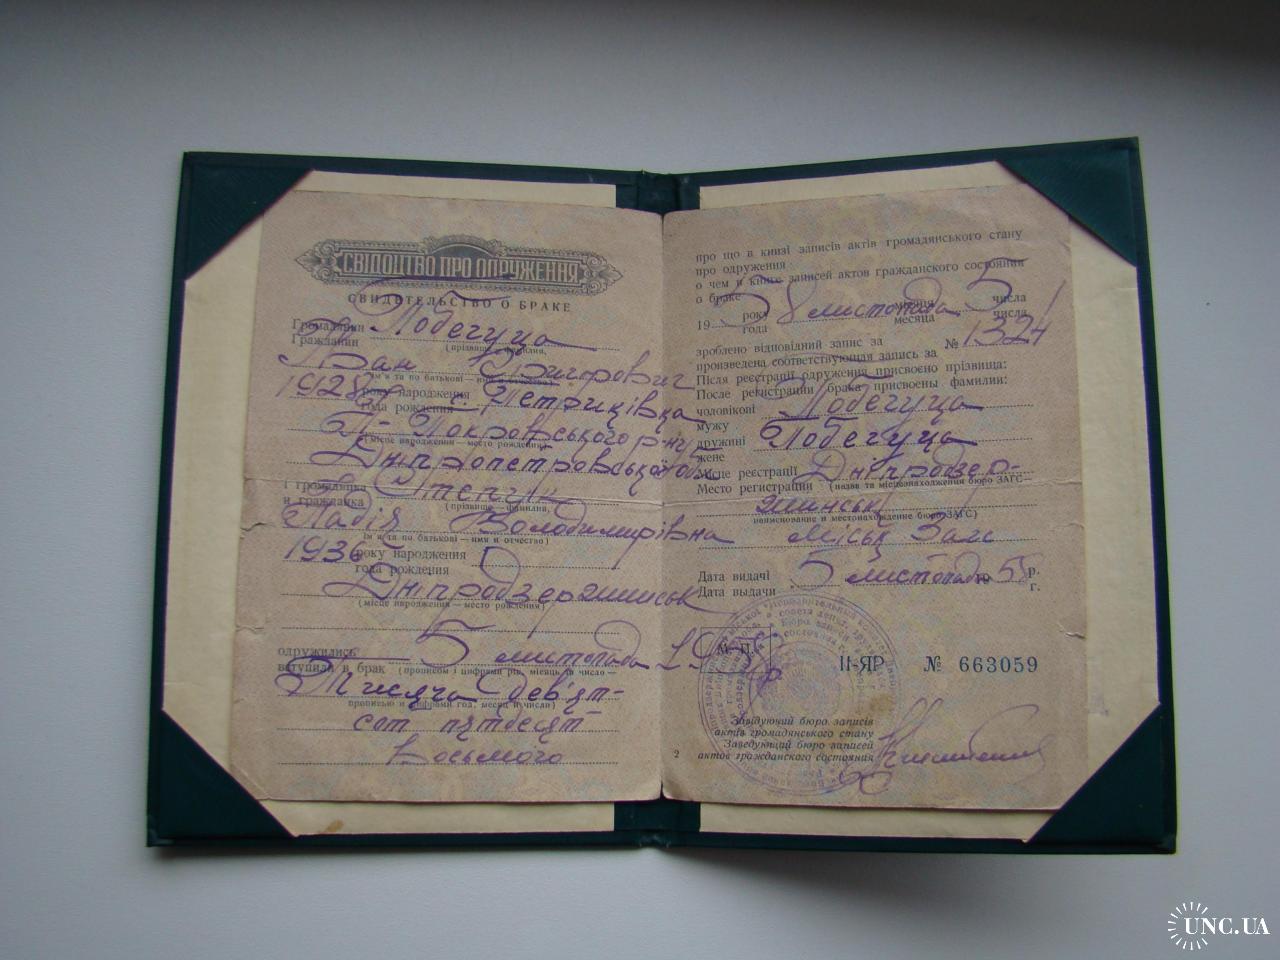 СВІДОЦТВО ПРО ОДРУЖЕННЯ
СВИДЕТЕЛЬСТВО О БРАКЕ
Громадянин
Гражданин
Побегуца
(прізвище — фамилия,
Іван Дмитрович
ім'я та по батькові — имя и отчество)
1928 року народження с. Петриківка
года рождения
Покровського р-ну
(місце народження — место рождения)
Дніпропетровської обл
і громадянка
и гражданка
(прізвище — фамилия,
Надія Володимирівна
ім'я та по батькові — имя и отчество)
1936 року народження
года рождения
Дніпродзержинськ
(місце народження — место рождения)
одружились 5 листопада 1958р.
вступили в брак (прописом і цифрами рік, місяць та число —
Тисяча дев'ят-
прописью и цифрами год, месяц и число)
сот пятдесят
восьмого
про що в книзі записів актів громадянського стану
про одруження
о чем в книге записей актов гражданского состояния
о браке
1958 року листопада місяця 5 числа
года месяца числа
зроблено відповідний запис за № 1324
произведена соответствующая запись за
Після реєстрації одруження присвоєно прізвища:
После регистрации брака присвоены фамилии:
чоловікові Побегуца
мужу
дружині Побегуца
жене
Місце реєстрації Дніпродзер-
Место регистрации (назва та місцезнаходження бюро ЗАГС —
жинськ
наименование и местонахождение бюро ЗАГС)
міськ Загс
Дата видачі 5 листопада 1958 р.
Дата выдачи г.
М. П.
II-ЯР № 663059
Завідуючий бюро записів
актів громадянського стану
Заведующий бюро записей
актов гражданского состояния
2
UNC.UA